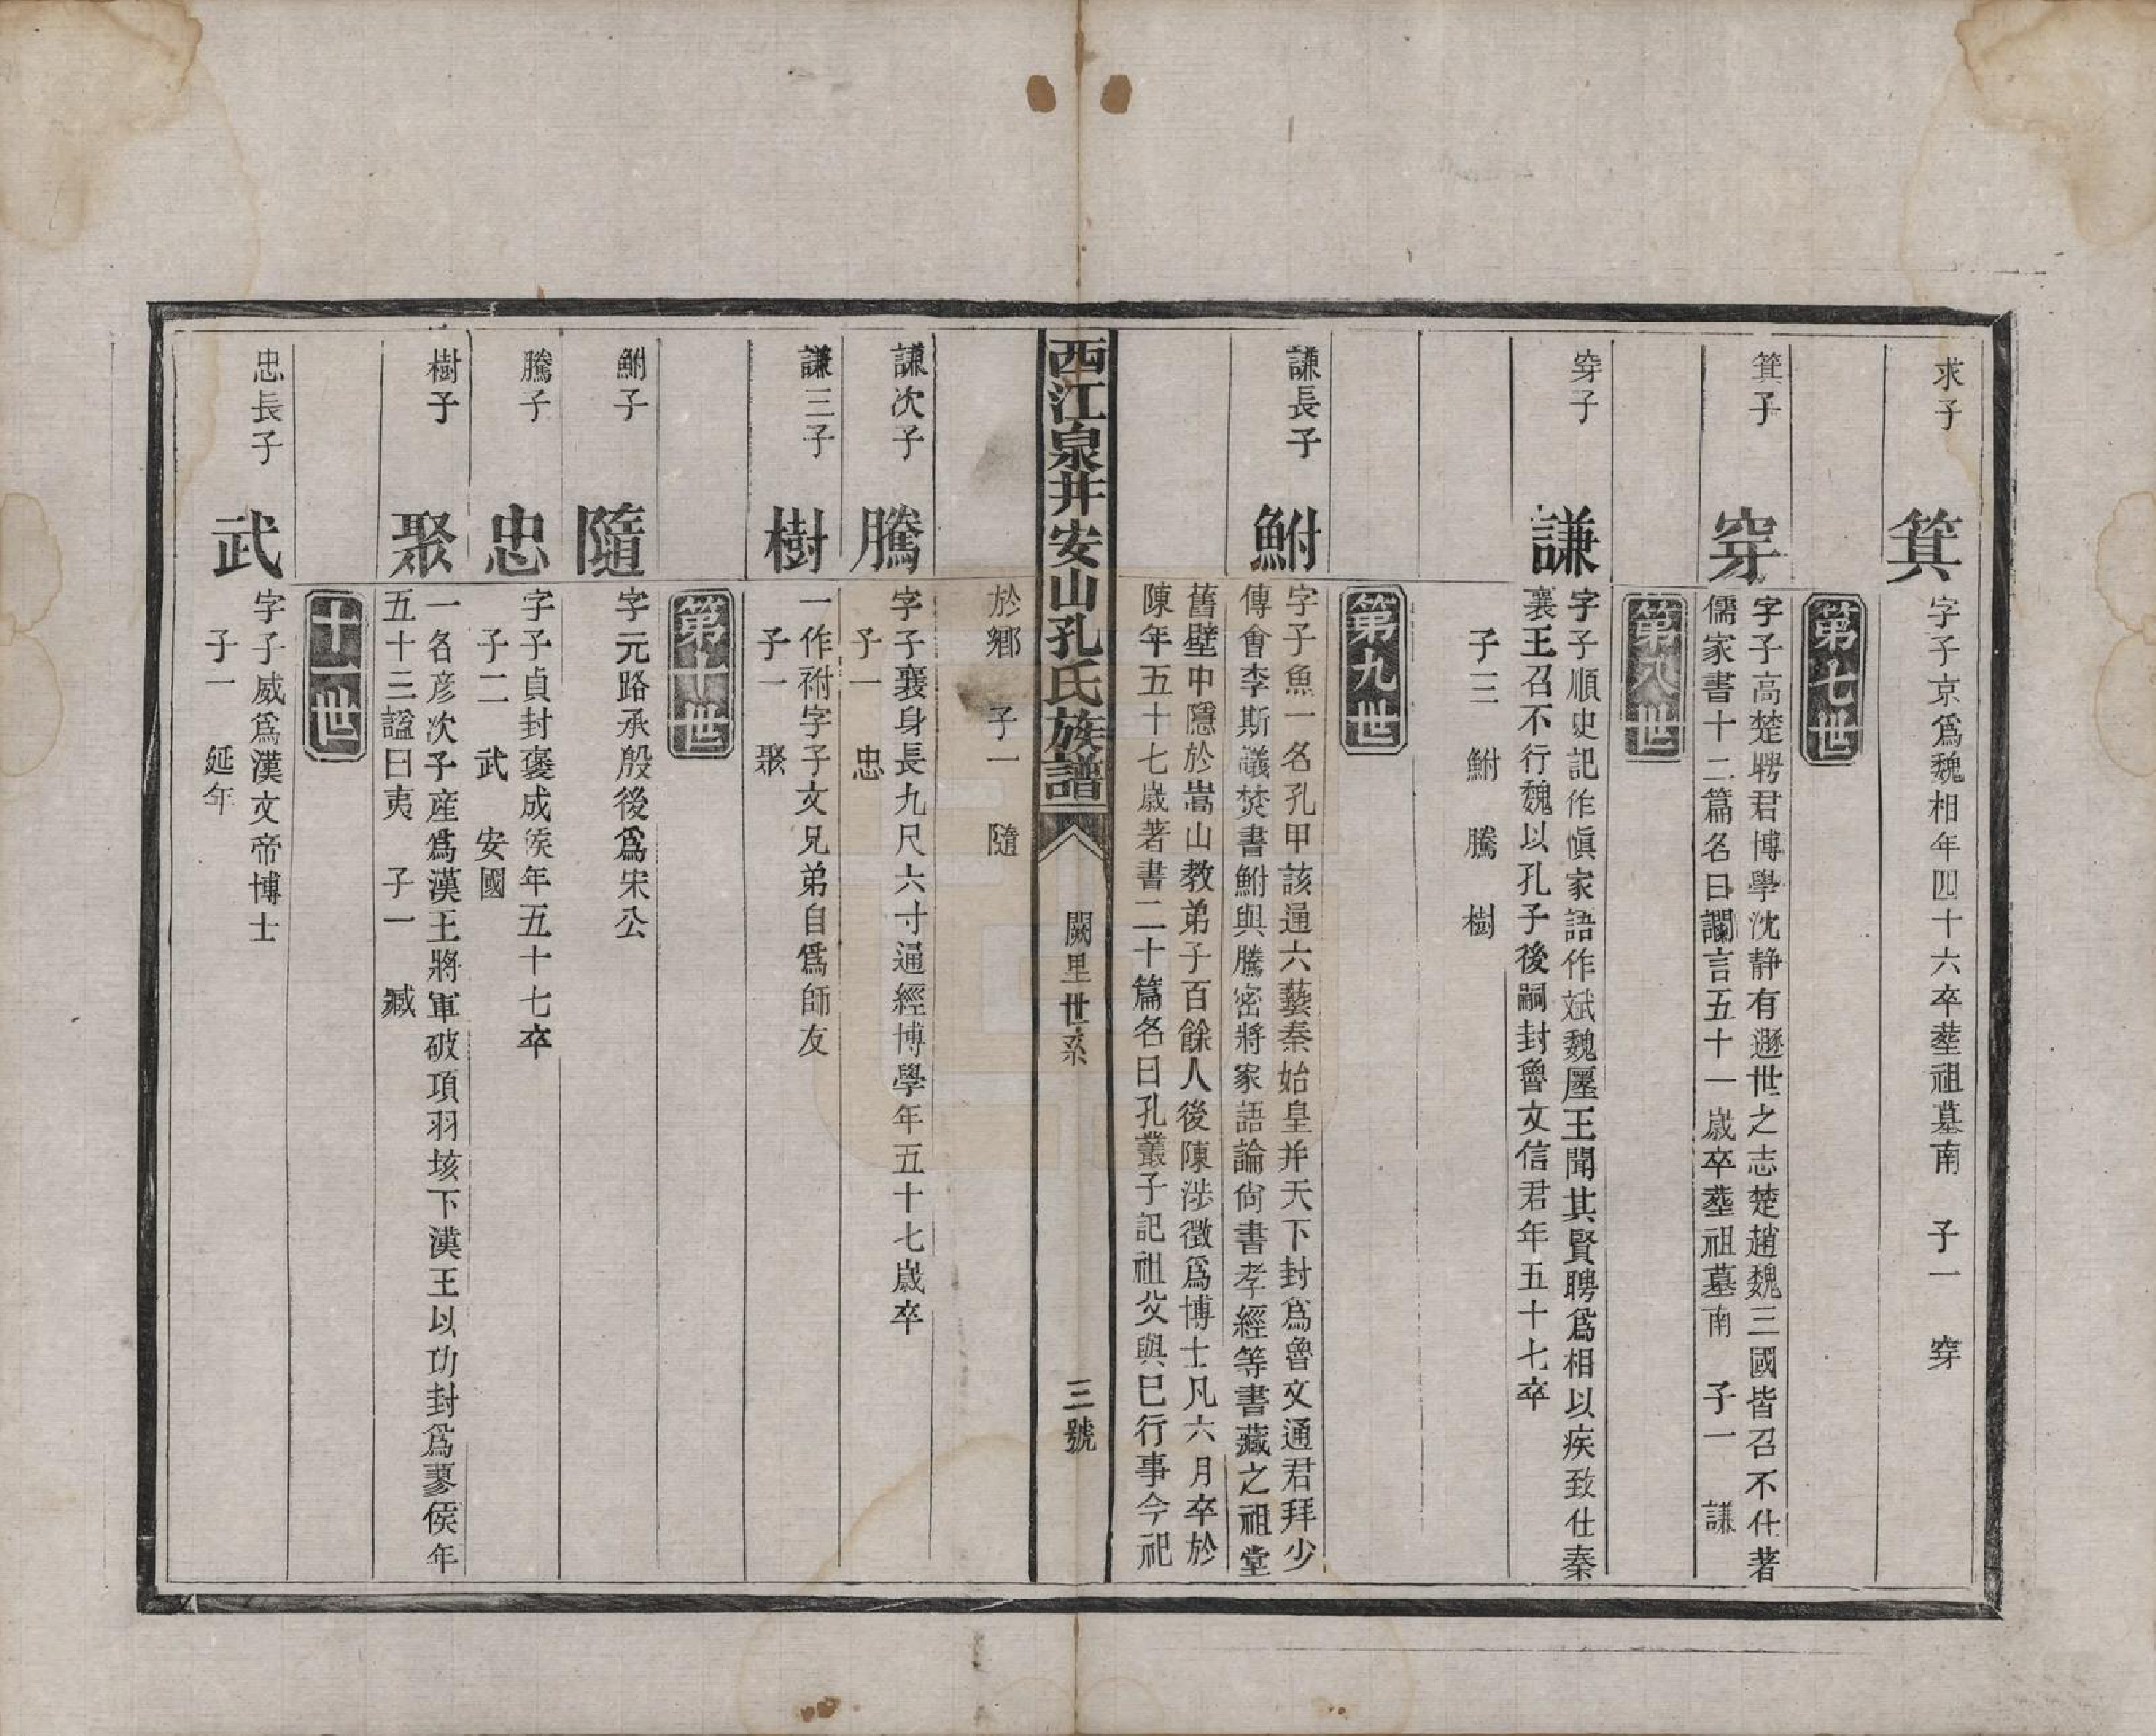 求子
箕
字子京爲魏相年四十六卒塟祖墓南　子一　穿
第七世
箕子
穿
字子高楚聘君博學沈静有遯世之志楚趙魏三國皆召不仕著
儒家書十二篇名曰讕言五十一歲卒塟祖墓南　子一　謙
第八世
穿子
謙
字子順史記作愼家語作斌魏𠪨王聞其賢聘爲相以疾致仕秦
襄王召不行魏以孔子後嗣封魯文信君年五十七卒
子三　鮒　騰　樹
第九世
謙長子
鮒
字子魚一名孔甲該通六藝秦始皇并天下封爲魯文通君拜少
傳會李斯議焚書鮒與騰密將家語論尙書孝經等書藏之祖堂
舊壁中隱於嵩山教弟子百餘人後陳涉徵爲博士凡六月卒於
陳年五十七歲著書二十篇名曰孔叢子記祖父與已行事今祀
西江泉井安山孔氏族譜
闕里世系
三號
於鄉　子一　隨
謙次子
騰
字子襄身長九尺六寸通經博學年五十七歲卒
子一　忠
謙三子
樹
一作祔字子文兄弟自爲師友
子一　聚
第十世
鮒子
隨
字元路承殷後爲宋公
騰子
忠
字子貞封褒成侯年五十七卒
子二　武　安國
樹子
聚
一名彦次子産爲漢王將軍破項羽垓下漢王以功封爲蓼侯年
五十三謚曰夷　子一　臧
十一世
忠長子
武
字子威爲漢文帝博士
子一　延年